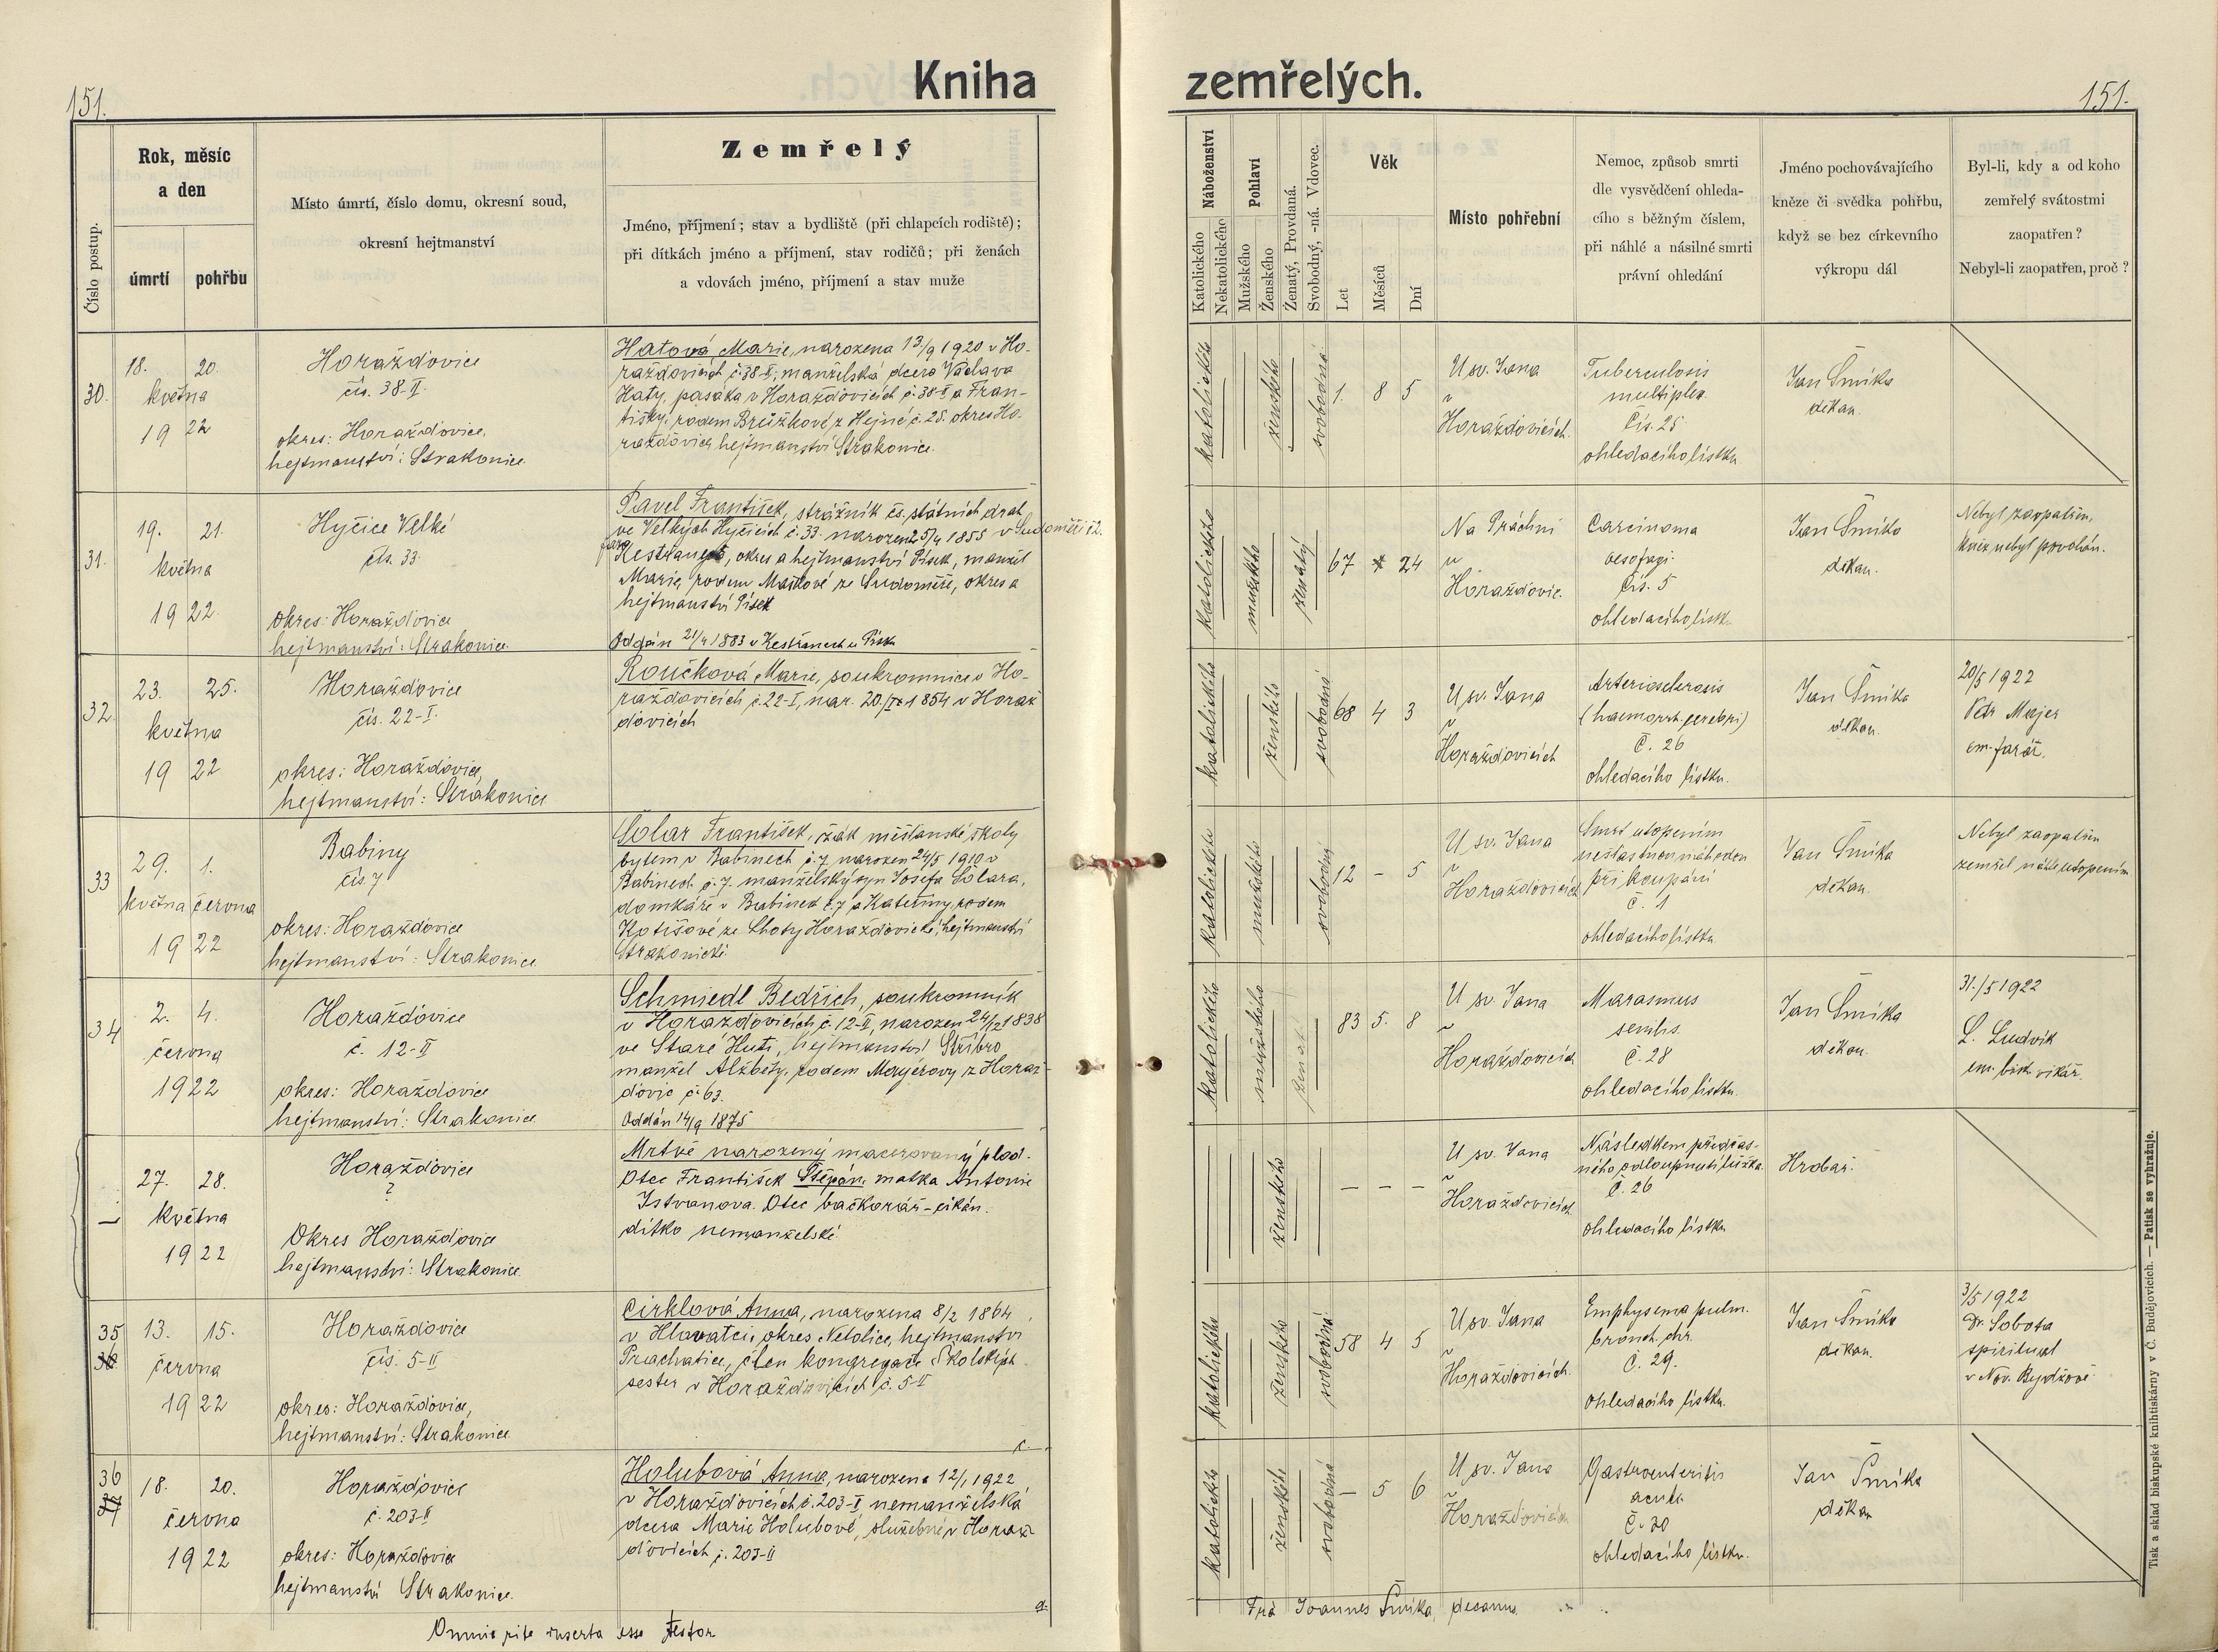 151.
Kniha
zemřelých.
151.
Číslo postup.
Rok, měsíc
a den
úmrtí
pohřbu
Místo úmrtí, číslo domu, okresní soud,
okresní hejtmanství
Zemřelý
Jméno, příjmení; stav a bydliště (při chlapcích rodiště);
při dítkách jméno a příjmení, stav rodičů; při ženách
a vdovách jméno, příjmení a stav muže
Náboženství
Katolického
Nekatolického
Pohlaví
Mužského
Ženského
Ženatý, Provdaná.
Svobodný, -ná. Vdovec.
Věk
Let
Měsíců
Dní
Místo pohřební
Nemoc, způsob smrti
dle vysvědčení ohleda-
cího s běžným číslem,
při náhlé a násilné smrti
právní ohledání
Jméno pochovávajícího
kněze či svědka pohřbu,
když se bez církevního
výkropu dál
Byl-li, kdy a od koho
zemřelý svátostmi
zaopatřen?
Nebyl-li zaopatřen, proč?
30.
18. 20.
května
1922
Horažďovice
čís. 38-II.
okres: Horažďovice,
hejtmanství: Strakonice.
Hatová Marie, narozena 13/9 1920 v Ho-
ražďovicích č. 38-II, manželská dcera Václava
Haty, pasáka v Horažďovicích č. 38-II a Fran-
tišky, rodem Brůžkové z Hejné č. 25. okres Ho-
ražďovice, hejtmanství Strakonice.
katolického
ženského
svobodná
1. 8 5
U sv. Jana
v
Horažďovicích.
Tuberculosis
multiplex
Čís. 25
ohledacího lístku
Jan Šmíka
děkan.
31.
19. 21.
května
1922.
Hyčice Velké
čís. 33.
okres: Horažďovice
hejtmanství: Strakonice.
Pavel František, strážník čs. státních drah
ve Velkých Hyčicích č. 33. narozen 25/4 1855 v Sudoměři č 2.
fara Kestřany, okres a hejtmanství Písek, manžel
Marie, rodem Maškové ze Sudoměře, okres a
hejtmanství Písek
Oddán 21/4 1883 v Kestřanech u Písku
katolického
mužského
ženatý
67 24
Na Práchni
u
Horažďovic.
Carcinoma
oesofagi
Čís. 5
ohledacího lístk.
Jan Šmíka
děkan.
Nebyl zaopatřen,
kněz nebyl povolán.
32.
23. 25.
května
1922
Horažďovice
čís. 22-I.
okres: Horažďovice,
hejtmanství: Strakonice
Roučková Marie, soukromnice v Ho-
ražďovicích č. 22-I, nar. 20./I 1854 v Horaž
ďovicích
katolického
ženského
svobodná
68 4 3
U sv. Jana
v
Horažďovicích
Arteriosclerosis
(haemorrh. cerebri)
č. 26
ohledacího lístku.
Jan Šmíka
děkan.
20/5 1922
Petr Majer
em. farář.
33
29. 1.
května června
1922
Babiny
čís. 7
okres: Horažďovice
hejtmanství: Strakonice
Solar František, žák měšťanské školy
bytem v Babinech č. 7, narozen 24/5 1910 v
Babinech č. 7. manželský syn Josefa Solara,
domkáře v Babinech č. 7 a Kateřiny, rodem
Kotišové ze Lhoty Horažďovické, hejtmanství
Strakonické.
katolického
mužského
svobodný
12 - 5
U sv. Jana
v
Horažďovicích
Smrt utopením
nešťastnou náhodou
při koupání
č. 1
ohledacího lístku
Jan Šmíka
děkan.
Nebyl zaopatřen
zemřel náhle utopením
34
2. 4.
června
1922
Horažďovice
č. 12-II
okres: Horažďovice
hejtmanství: Strakonice
Schmiedl Bedřich, soukromník
v Horažďovicích č. 12-II, narozen 24/12 1838
ve Staré Huti, hejtmanství Stříbro
manžel Alžběty, rodem Mayerovy z Horaž-
ďovic č. 63.
Oddán 14/9 1875
katolického
mužského
ženat.
83 5. 8
U sv. Jana
v
Horažďovicích
Marasmus
senilis.
č. 28
ohledacího lístku.
Jan Šmíka
děkan.
31./5 1922
L. Ludvík
em. bisk. vikář.
—
27. 28.
května
1922
Horažďovice
?
Okres Horažďovice
hejtmanství: Strakonice.
Mrtvě narozený macerovaný plod.
Otec František Štěpán, matka Antonie
Istvanova. Otec bačkorář-cikán.
dítko nemanželské.
ženského
— — —
U sv. Jana
v
Horažďovicích
Následkem předčas-
ného odloupnutí lůžka.
Č. 26
ohledacího lístku
Hrobař.
35
36
13. 15.
června
1922
Horažďovice
čís. 5-II
okres: Horažďovice,
hejtmanství: Strakonice.
Cirklová Anna, narozena 8/2 1864
v Hlavatci, okres Netolice, hejtmanství
Prachatice, člen kongregace Školských
sester v Horažďovicích č. 5-II
katolického
ženského
svobodná
58 4 5
U sv. Jana
v
Horažďovicích.
Emphysema pulm.
bronch. chr.
Č. 29.
ohledacího lístku.
Jan Šmíka
děkan.
3/5 1922
Dr. Sobota
spirituál
v Nov. Bydžově
36
37
18. 20.
června
1922
Horažďovice
č. 203-II
okres: Horažďovice
hejtmanství Strakonice.
Holubová Anna, narozena 12/1 1922
v Horažďovicích č. 203-II, nemanželská
dcera Marie Holubové, služebné v Horaž-
ďovicích č. 203-II
katolického
ženského
svobodná
— 5 6
U sv. Jana
v
Horažďovicích
Gastroenteritis
acuta
Č. 30
ohledacího lístku.
Jan Šmíka
děkan
Omnia rite inserta esse testor
Fra Joannes Šmíka, decanus.
Tisk a sklad biskupské knihtiskárny v Č. Budějovicích. — Patisk se vyhražuje.